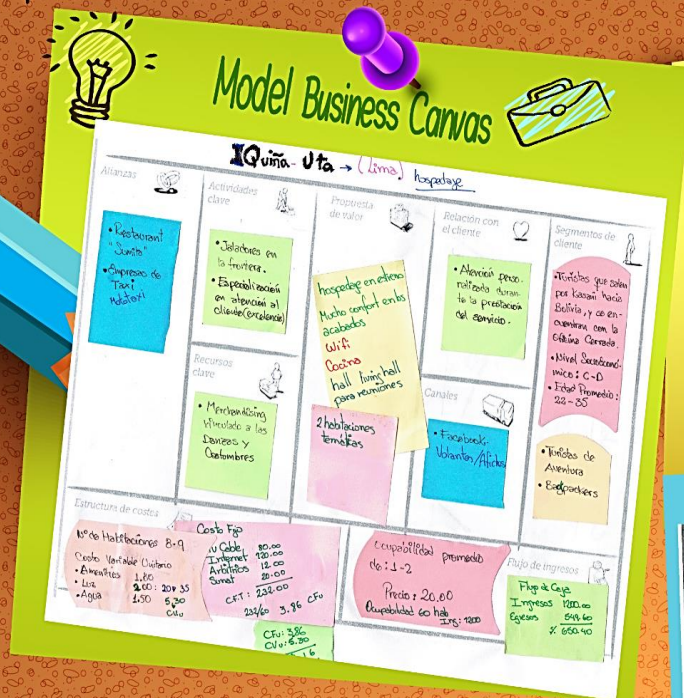 Model Business Canvas
IQuiña-Uta → (Lima) hospedaje
Alianzas
• Restaurant
"Sumita"
• Empresas de
Taxi
Mototaxi
Actividades
clave
• Jaladores en
la frontera.
• Especialización
en atención al
cliente (excelencia)
Recursos
clave
• Merchandising
vinculado a las
Danzas y
Costumbres
Propuesta
de valor
hospedaje en
Mucho confort en los
acabados
Wifi
Cocina
hall living hall
para reuniones
2 habitaciones
temáticas
Relación con
el cliente
• Atención perso-
nalizada duran-
te la prestación
del servicio.
Canales
• Facebook
Volantes/Afiches
Segmentos de
cliente
• Turistas que salen
por Kasani hacia
Bolivia, y se en-
cuentran con la
Oficina Cerrada.
• Nivel Socioeconó-
mico: C-D
• Edad Promedio:
22-35
• Turistas de
Aventura
• Backpackers
Estructura de costos
Nº de Habitaciones 8-9
Costo Variable Unitario
• Amenities 1.80
• Luz 2.00 : 20 35
• Agua 1.50 5,30
CVu
Costo Fijo
Cable 80.00
Internet 120.00
Arbitrios 12.00
Sunat 20.00
CFT: 232.00
232/60 3.86 CFu
CFu: 3.86
CVu: 5.30
Ocupabilidad promedio
de: 1-2
Precio: 20.00
Ocupabilidad 60 hab
Ing: 1200
Flujo de ingresos
Flujo de Caja
Ingresos 1200.00
Egresos 549.60
650.40